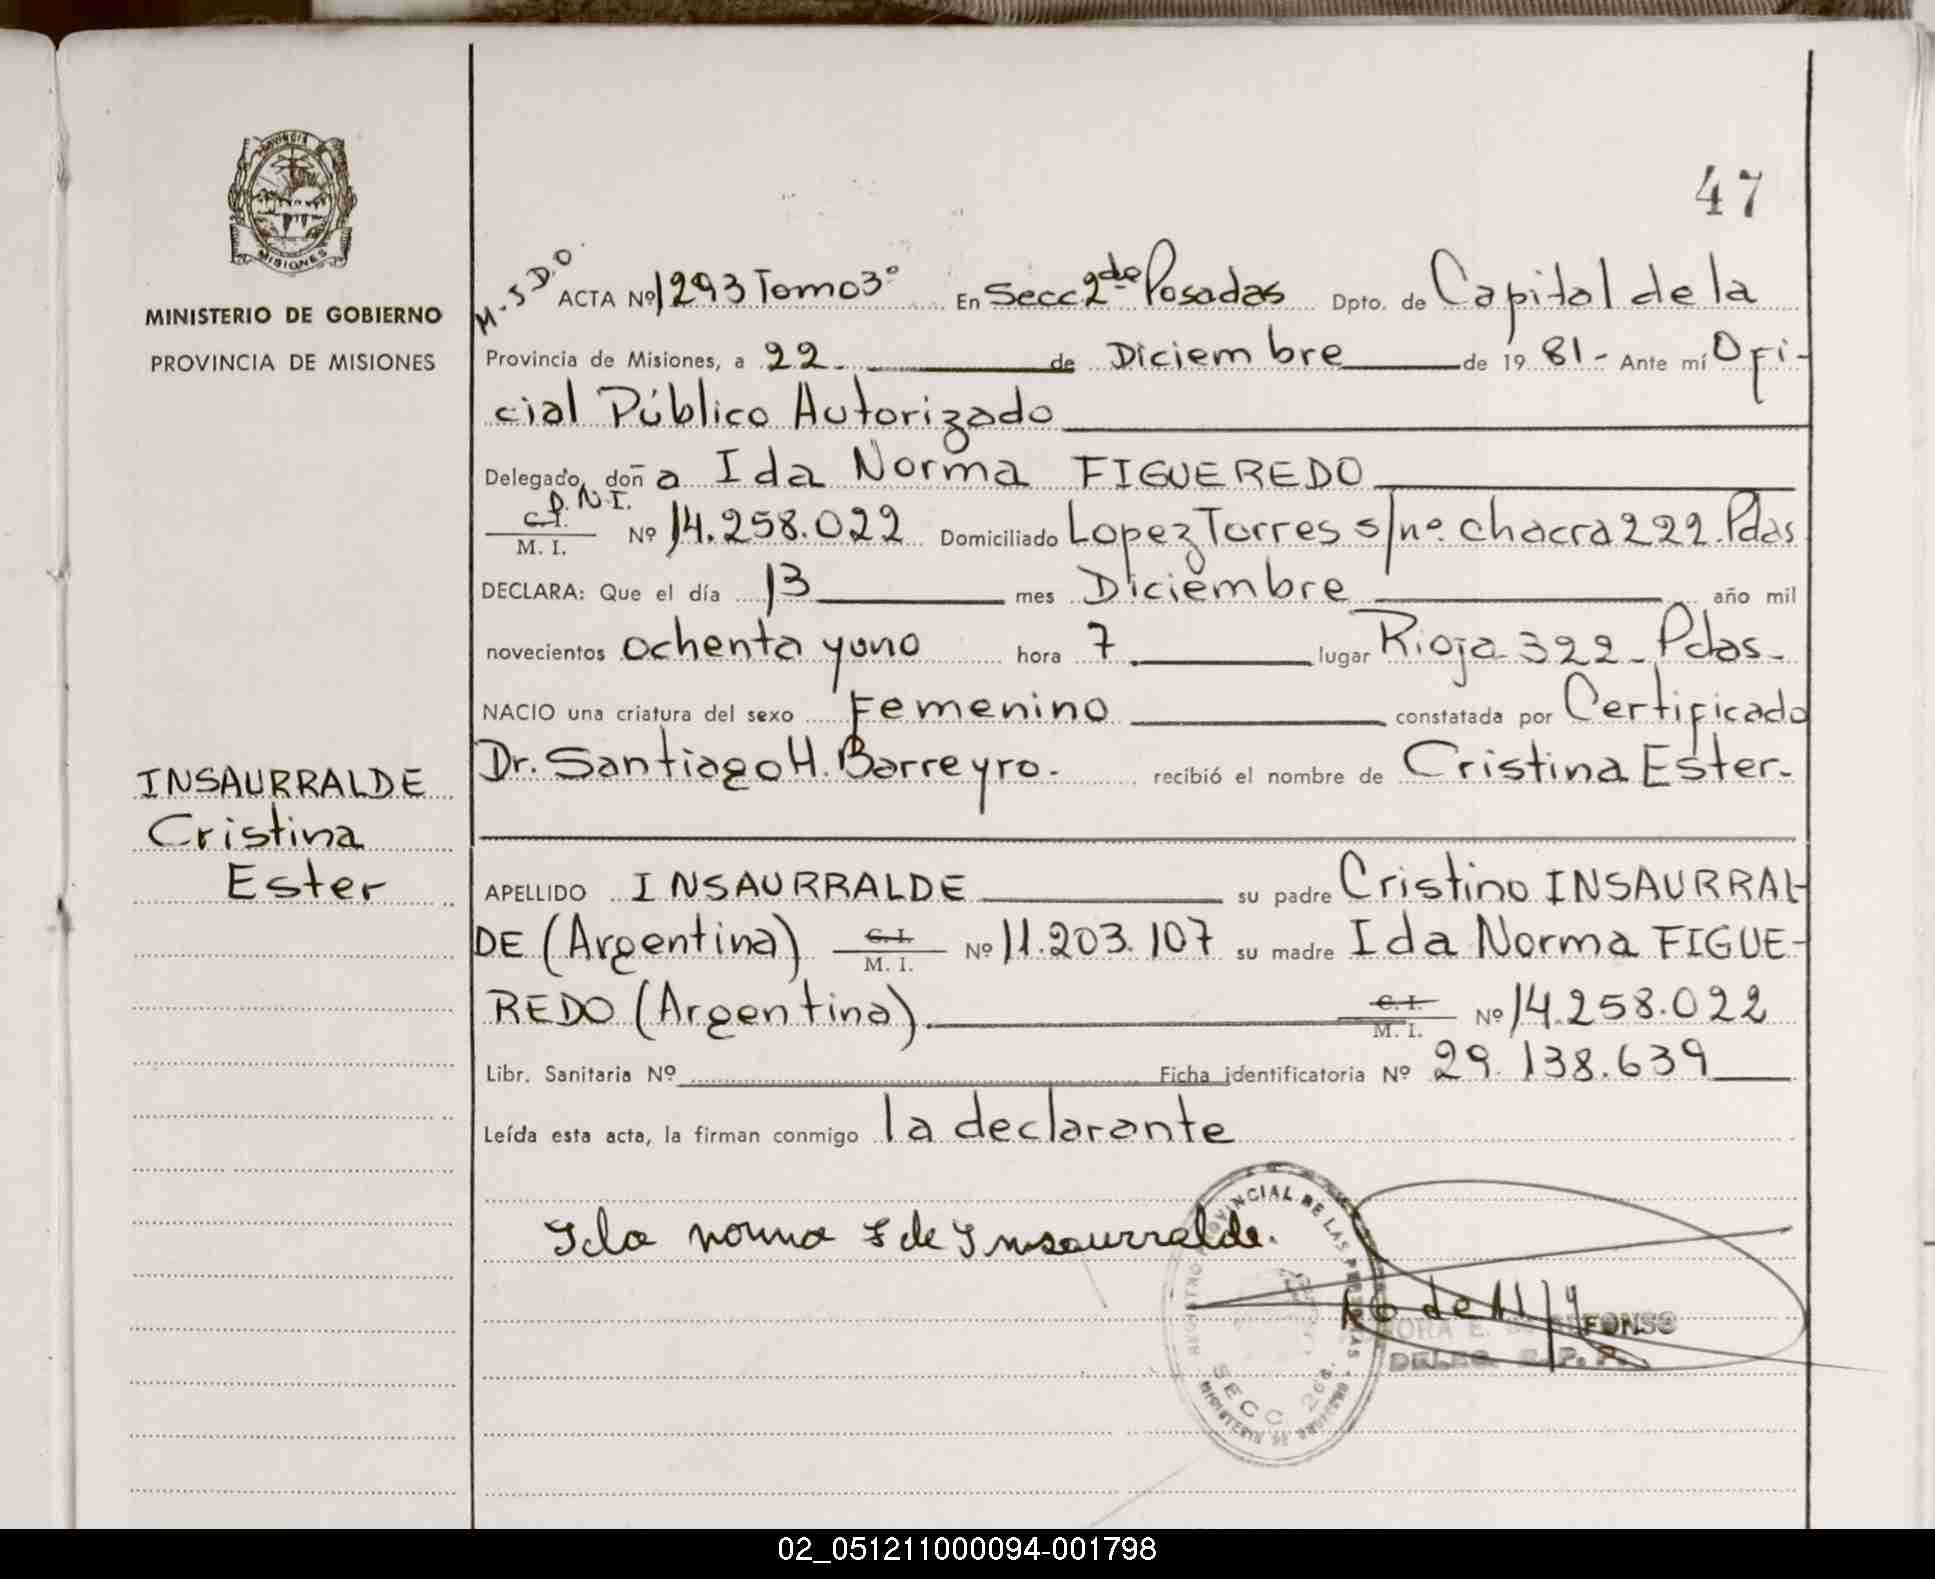 47
PROVINCIA DE
MISIONES
MINISTERIO DE GOBIERNO
PROVINCIA DE MISIONES
M.S.D.O
ACTA Nº 1293 Tomo 3º En Secc 2da Posadas Dpto. de Capital de la
Provincia de Misiones, a 22 de Diciembre de 19 81.- Ante mí Ofi-
cial Público Autorizado
Delegado, doña Ida Norma FIGUEREDO
D.N.I.
C.I.
M. I. Nº 14.258.022 Domiciliado Lopez Torres s/nº. chacra 222. Pdas
DECLARA: Que el día 13 mes Diciembre año mil
novecientos ochenta yuno hora 7 lugar Rioja 322 - Pdas-
NACIO una criatura del sexo Femenino constatada por Certificado
Dr. Santiago H. Barreyro. recibió el nombre de Cristina Ester.
INSAURRALDE
Cristina
Ester
APELLIDO INSAURRALDE su padre Cristino INSAURRAL-
DE (Argentina) C.I. M. I. Nº 11.203.107 su madre Ida Norma FIGUE-
REDO (Argentina) C.I. M. I. Nº 14.258.022
Libr. Sanitaria Nº Ficha identificatoria Nº 29.138.639
Leída esta acta, la firman conmigo la declarante
Ida norma F de Insaurralde.
REGISTRO PROVINCIAL DE LAS PERSONAS
SECC. 2da.
MINISTERIO DE GOBIERNO
DELEG. R. P. P.
02_051211000094-001798